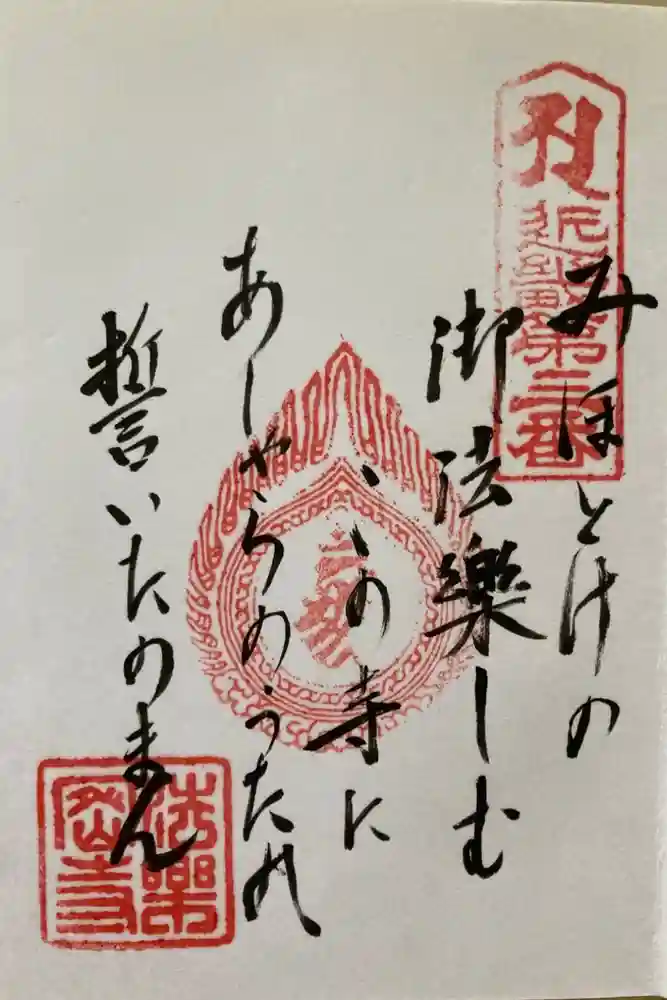 近畿第三番
みほとけの
御法樂しむ
この寺に
あしやらのうたれ
誓いたのまん
法樂密寺